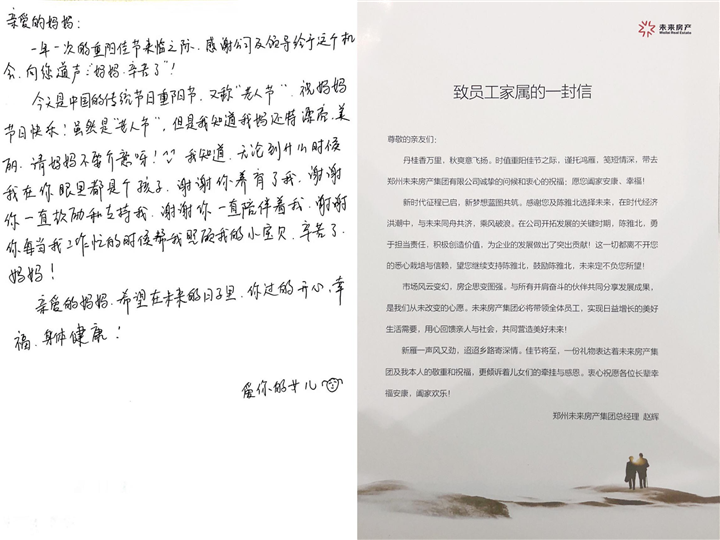 亲爱的妈妈：
一年一次的重阳佳节来临之际，感谢公司及领导给予这个机
会，向您道声：“妈妈，辛苦了”！
今天是中国的传统节日重阳节，又称“老人节”，祝妈妈
节日快乐！虽然是“老人节”，但是我知道我妈还特漂亮，美
丽，请妈妈不要介意呀！我知道，无论到什么时候
我在你眼里都是个孩子，谢谢你养育了我，谢谢
你一直鼓励和支持我，谢谢你一直陪伴着我，谢谢
你每当我工作忙的时候帮我照顾我的小宝贝，辛苦了，
妈妈！
亲爱的妈妈，希望在未来的日子里，你过的开心，幸
福，身体健康！
爱你的女儿
未来房产
Weilai Real Estate
致员工家属的一封信
尊敬的亲友们：
丹桂香万里，秋爽意飞扬。时值重阳佳节之际，谨托鸿雁，笺短情深，带去
郑州未来房产集团有限公司诚挚的问候和衷心的祝福；愿您阖家安康，幸福！
新时代征程已启，新梦想蓝图共筑。感谢您及陈雅北选择未来，在时代经济
洪潮中，与未来同舟共济，乘风破浪。在公司开拓发展的关键时期，陈雅北，勇
于担当责任，积极创造价值，为企业的发展做出了突出贡献！这一切都离不开您
的悉心栽培与信赖，望您继续支持陈雅北，鼓励陈雅北，未来定不负您所望！
市场风云变幻，房企思变图强，与所有并肩奋斗的伙伴共同分享发展成果，
是我们从未改变的心愿。未来房产集团必将带领全体员工，实现日益增长的美好
生活需要，用心回馈亲人与社会，共同营造美好未来！
新雁一声风又劲，迢迢乡路寄深情。佳节将至，一份礼物表达着未来房产集
团及我本人的敬重和祝福，更倾诉着儿女们的牵挂与感恩。衷心祝愿各位长辈幸
福安康，阖家欢乐！
郑州未来房产集团总经理 赵辉